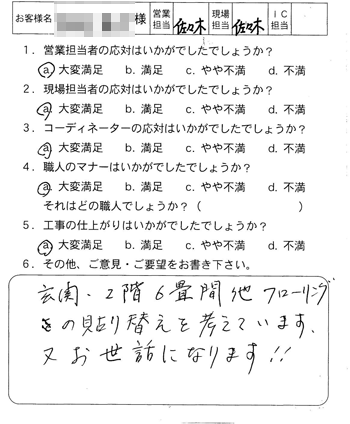 お客様名 様 営業担当 佐々木 現場担当 佐々木 IC担当
1. 営業担当者の応対はいかがでしたでしょうか?
a. 大変満足 b. 満足 c. やや不満 d. 不満
2. 現場担当者の応対はいかがでしたでしょうか?
a. 大変満足 b. 満足 c. やや不満 d. 不満
3. コーディネーターの応対はいかがでしたでしょうか?
a. 大変満足 b. 満足 c. やや不満 d. 不満
4. 職人のマナーはいかがでしたでしょうか?
a. 大変満足 b. 満足 c. やや不満 d. 不満
それはどの職人でしょうか?( )
5. 工事の仕上がりはいかがでしたでしょうか?
a. 大変満足 b. 満足 c. やや不満 d. 不満
6. その他、ご意見・ご要望をお書き下さい。
玄関、2階6畳間他フローリング
の貼り替えを考えています、
又お世話になります!!